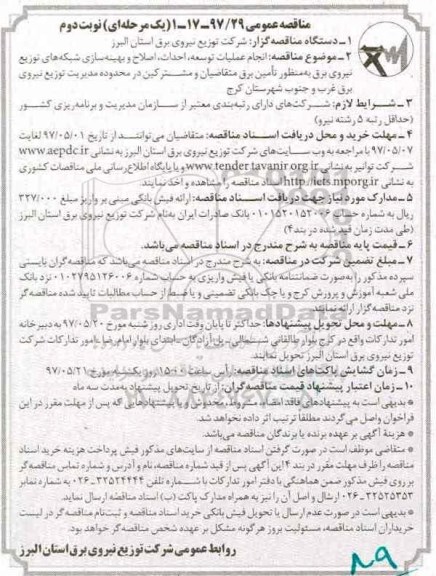 مناقصه عمومی ۹۷/۲۹-۱۷-۱ (یک مرحله‌ای) نوبت دوم
۱ ـ دستگاه مناقصه‌گزار: شرکت توزیع نیروی برق استان البرز
۲ ـ موضوع مناقصه: انجام عملیات توسعه، احداث، اصلاح و بهینه‌سازی شبکه‌های توزیع
نیروی برق به‌منظور تأمین برق متقاضیان و مشترکین در محدوده مدیریت توزیع نیروی
برق غرب و جنوب شهرستان کرج
۳ ـ شرایط لازم: شرکت‌های دارای رتبه‌بندی معتبر از سازمان مدیریت و برنامه‌ریزی کشور
(حداقل رتبه ۵ رشته نیرو)
۴ ـ مهلت خرید و محل دریافت اسناد مناقصه: متقاضیان می‌توانند از تاریخ ۹۷/۰۵/۰۱ لغایت
۹۷/۰۵/۰۷ با مراجعه به وب سایت‌های شرکت توزیع نیروی برق استان البرز به نشانی www.aepdc.ir
شرکت توانیر به نشانی www.tender.tavanir.org.ir و یا پایگاه اطلاع‌رسانی ملی مناقصات کشوری
به نشانی http://iets.mporg.ir اسناد مناقصه را مشاهده و اخذ نمایند.
۵ ـ مدارک مورد نیاز جهت دریافت اسناد مناقصه: ارائه فیش بانکی مبنی بر واریز مبلغ ۳۲۷/۰۰۰
ریال به شماره حساب ۰۱۰۱۵۲۰۱۵۲۰۰۶ بانک صادرات ایران به‌نام شرکت توزیع نیروی برق استان البرز
(طی مدت زمان قید شده در بند ۴)
۶ ـ قیمت پایه مناقصه به شرح مندرج در اسناد مناقصه می‌باشد.
۷ ـ مبلغ تضمین شرکت در مناقصه: به شرح مندرج در اسناد مناقصه می‌باشد که مناقصه‌گران بایستی
سپرده مذکور را به‌صورت ضمانتنامه بانکی یا فیش واریزی به حساب شماره ۰۱۰۲۷۹۵۱۲۶۰۰۶ نزد بانک
ملی شعبه آموزش و پرورش کرج و یا چک بانکی تضمینی و یا ضبط از حساب مطالبات تایید شده مناقصه‌گر
نزد مناقصه‌گزار ارائه نمایند.
۸ ـ مهلت و محل تحویل پیشنهادها: حداکثر تا پایان وقت اداری روز شنبه مورخ ۹۷/۰۵/۲۰ به دبیرخانه
امور تدارکات واقع در کرج بلوار طالقانی شمالی ـ پل آزادگان ـ ابتدای بلوار امام رضا ـ امور تدارکات شرکت
توزیع نیروی برق استان البرز تحویل نمایند.
۹ ـ زمان گشایش پاکت‌های اسناد مناقصه: رأس ساعت ۱۵:۰۰ روز یکشنبه مورخ ۹۷/۰۵/۲۱
۱۰ ـ زمان اعتبار پیشنهاد قیمت مناقصه‌گران: از تاریخ تحویل پیشنهاد به‌مدت سه ماه
* بدیهی است به پیشنهادهای فاقد امضاء، مشروط، مخدوش و پیشنهادهایی که پس از مهلت مقرر در این
فراخوان واصل می‌گردند مطلقاً ترتیب اثر داده نخواهد شد.
* هزینه آگهی بر عهده برنده یا برندگان مناقصه می‌باشد.
* متقاضی موظف است در صورت گرفتن اسناد مناقصه از سایت‌های مذکور فیش پرداخت هزینه خرید اسناد
مناقصه را ظرف مهلت مقرر در بند ۴ این آگهی پس از قید شماره مناقصه، نام و آدرس و شماره تماس مناقصه‌گر
بر روی فیش مذکور ضمن هماهنگی با دفتر امور تدارکات با شماره تلفن ۳۲۵۲۴۴۴۴-۰۲۶ به شماره نمابر
۳۲۵۲۵۳۵۳-۰۲۶ ارسال و اصل آن را نیز به همراه مدارک پاکت (ب) اسناد مناقصه ارسال نماید.
* بدیهی است در صورت عدم ارسال یا تحویل فیش بانکی خرید اسناد مناقصه و ثبت‌نام مناقصه‌گر در لیست
خریداران اسناد مناقصه، مسئولیت بروز هرگونه مشکل بر عهده شخص مناقصه‌گر خواهد بود.
روابط عمومی شرکت توزیع نیروی برق استان البرز
ParsNamadData
۸۹